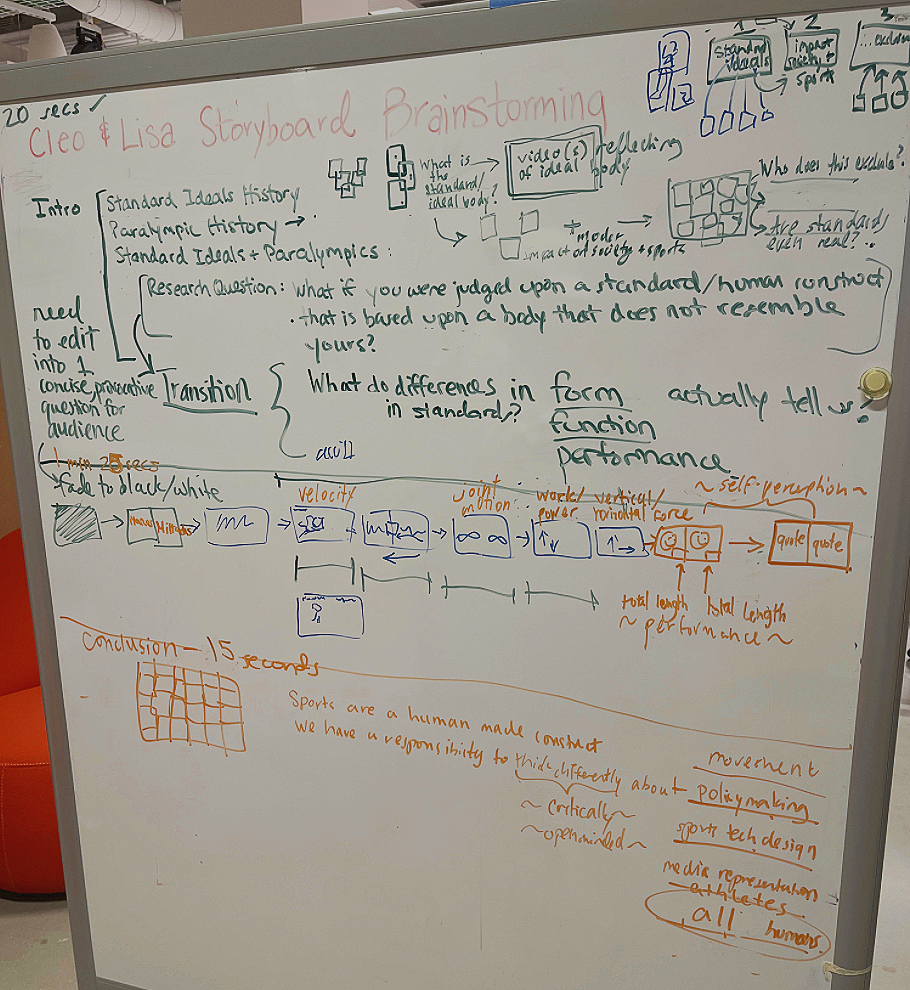 1 2 3
standard ideals
impact society + sports
... exclude
20 secs ✓
Cleo & Lisa Storyboard Brainstorming
What is the standard/ideal body?
video(s) of ideal
reflecting body
Who does this exclude?
+ more
impact on society + sports
Are standards even real?...
Intro
Standard Ideals History
Paralympic History →
Standard Ideals + Paralympics
Research Question: What if you were judged upon a standard/human construct
that is based upon a body that does not resemble
yours?
need
to edit
into 1
concise, provocative
question for
audience
Transition
What do differences in form actually tell us?
in standards?
function
performance
1 min 25 secs
*fade to black/white
velocity
joint motion
work/power
vertical/horizontal force
~ self-perception ~
quote quote
total length total length
~ performance ~
conclusion - 15 seconds
Sports are a human made construct
We have a responsibility to think differently about
~ critically ~
~ openminded ~
movement
policymaking
sports tech design
media representation
athletes
all humans